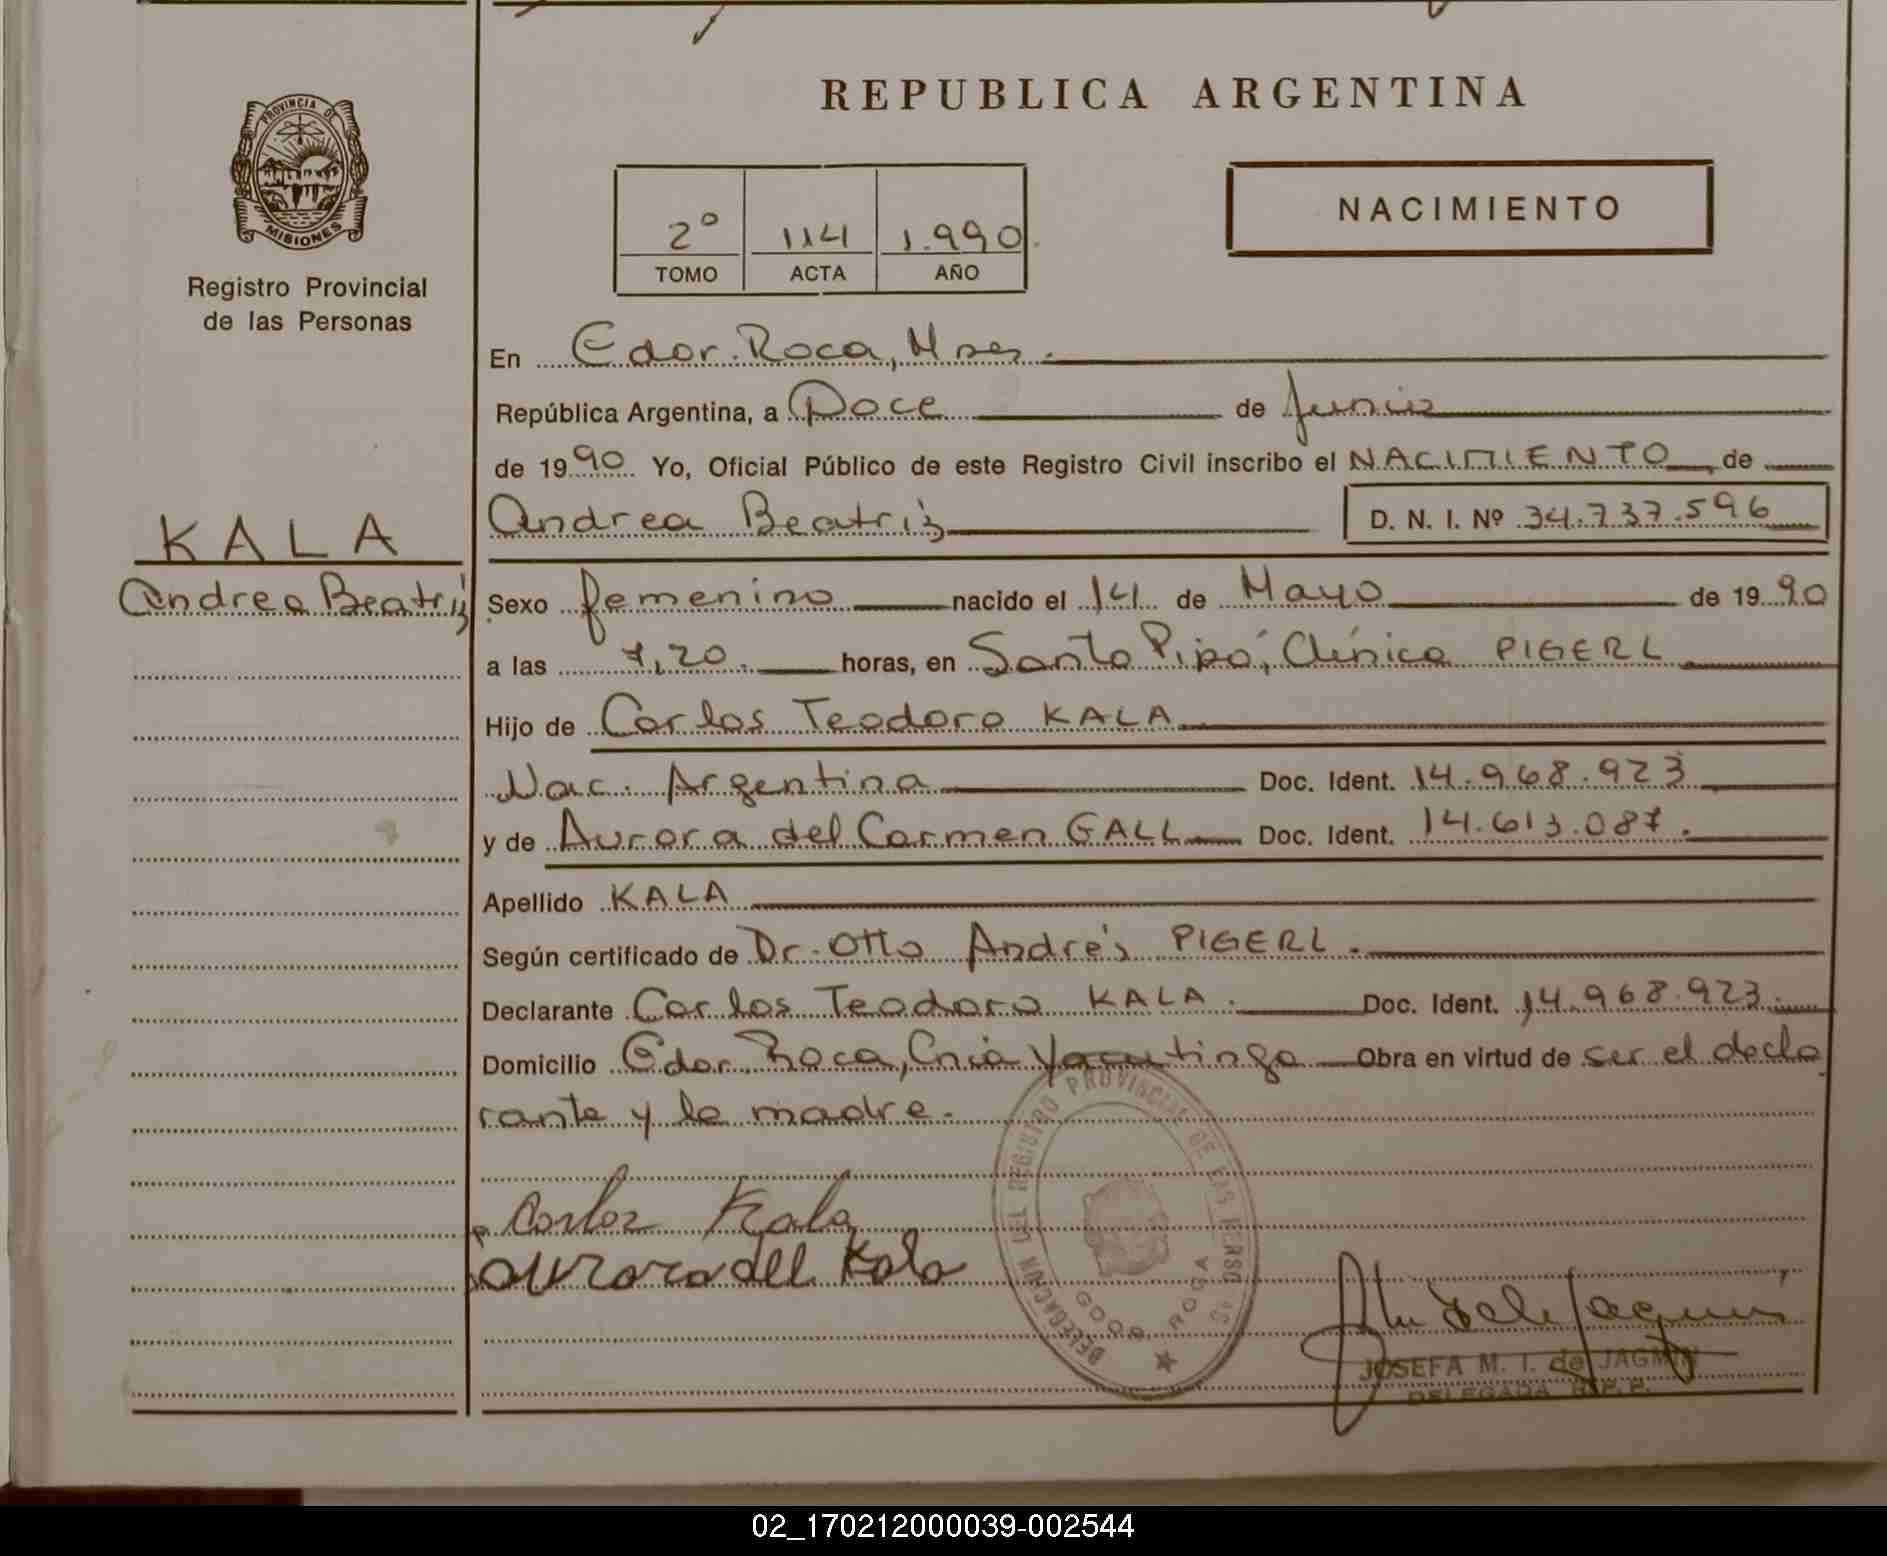 REPUBLICA ARGENTINA
PROVINCIA DE
MISIONES
Registro Provincial
de las Personas
2º 114 1.990
TOMO ACTA AÑO
NACIMIENTO
En Gdor. Roca, Mnes.
República Argentina, a Doce de Junio
de 1990 Yo, Oficial Público de este Registro Civil inscribo el NACIMIENTO de
KALA
Andrea Beatriz
Andrea Beatriz D. N. I. Nº 34.737.596
Sexo femenino nacido el 14 de Mayo de 1990
a las 7,20. horas, en Santo Pipó, Clínica PIGERL
Hijo de Carlos Teodoro KALA
Nac. Argentina Doc. Ident. 14.968.923
y de Aurora del Carmen GALL Doc. Ident. 14.613.087.
Apellido KALA
Según certificado de Dr. Otto Andrés PIGERL.
Declarante Carlos Teodoro KALA. Doc. Ident. 14.968.923.
Domicilio Gdor. Roca, Cnia Yacutinga Obra en virtud de ser el decla
rante y la madre.
Carlos Kala
Aurora del Kala
DELEGACION DEL REGISTRO PROVINCIAL DE LAS PERSONAS
GDOR ROCA
JOSEFA M. I. de JAGMIN
DELEGADA R.P.P.
02_170212000039-002544